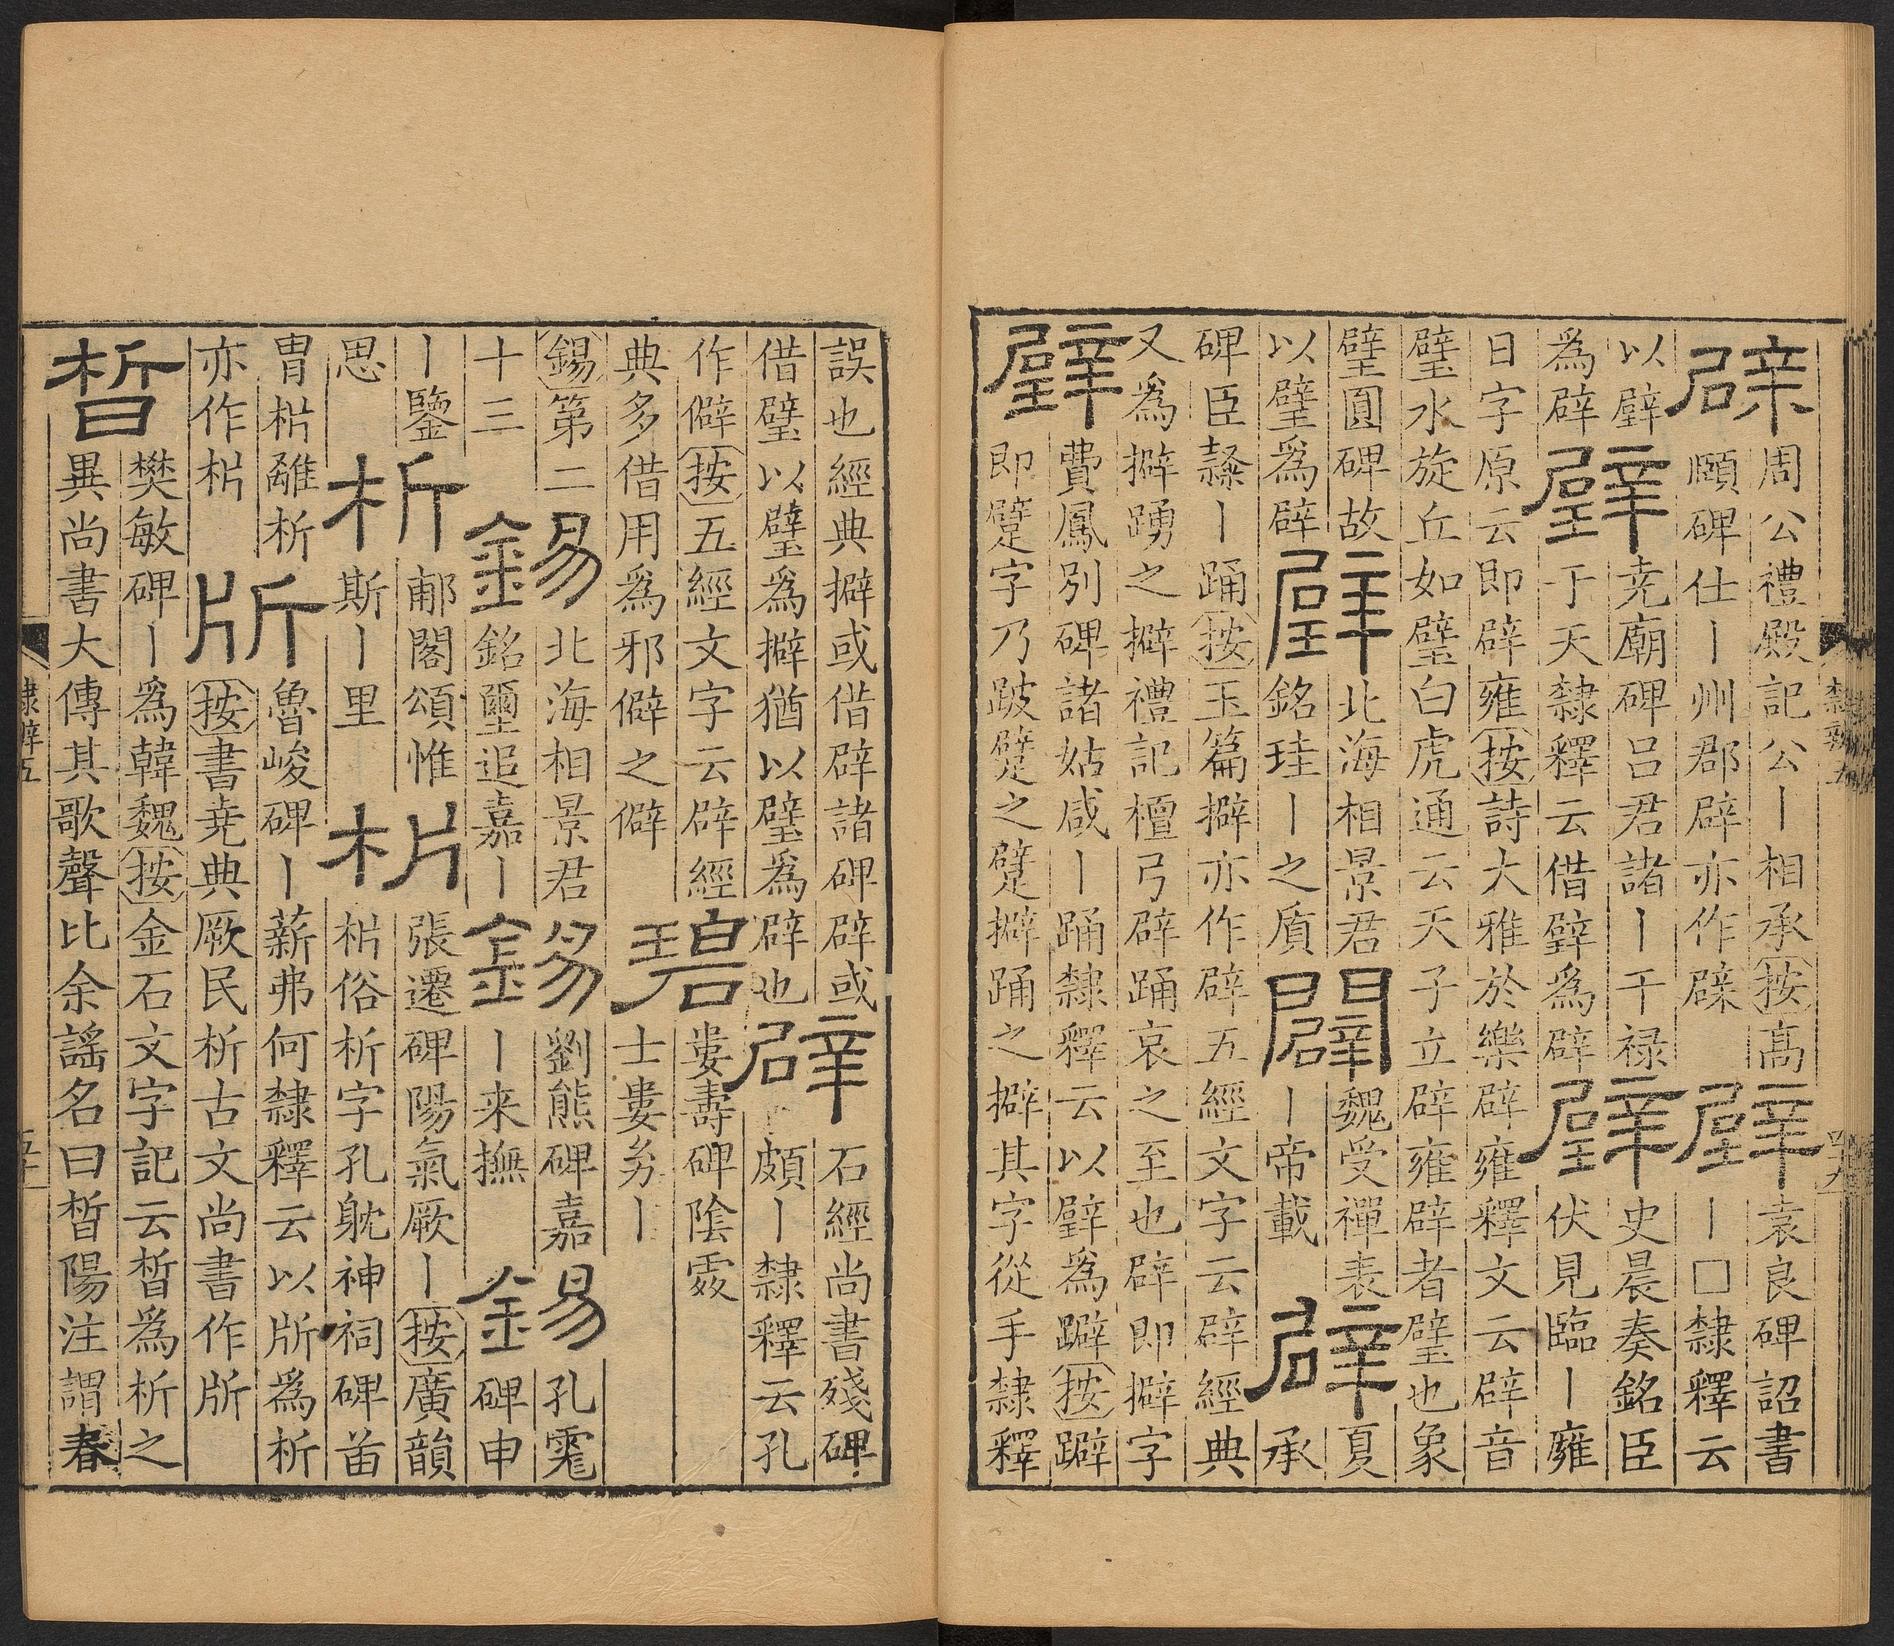 辟
周公禮殿記公丨相承按髙
頤碑仕丨州郡辟亦作辟
壁
袁良碑詔書
丨□隸釋云
以壁
為辟
壁
尭廟碑吕君諸丨干禄
于天隸釋云借壁為辟
壁
史晨奏銘臣
伏見臨丨雍
日字原云即辟雍按詩大雅於樂辟雍釋文云辟音
璧水旋丘如璧白虎通云天子立辟雍辟者璧也象
璧圓碑故
以璧為辟
壁
北海相景君
銘珪丨之質
闢
魏受禪表
丨帝載
辟
夏
承
碑臣隸丨踊按玉篇擗亦作辟五經文字云辟經典
又為擗踴之擗禮記檀弓辟踊哀之至也辟即擗字
壁
費鳳別碑諸姑咸丨踊隸釋云以壁為躃按躃
即躄字乃跛躄之躄擗踊之擗其字從手隸釋
誤也經典擗或借辟諸碑辟或
借璧以壁為擗猶以璧為辟也
辟
石經尚書殘碑
頗丨隸釋云孔
作僻按五經文字云辟經
典多借用為邪僻之僻
碧
婁壽碑陰處
士婁幼丨
錫第二
十三
錫
北海相景君
銘璽追嘉丨
錫
劉熊碑嘉
丨来撫
錫
孔
碑申
丨鑒
思
析
郙閣頌惟
斯丨里
枂
張遷碑陽氣厥丨按廣韻
枂俗析字孔耽神祠碑苗
胄枂離析
亦作枂
㸞
魯峻碑丨薪弗何隸釋云以㸞為析
按書尭典厥民析古文尚書作㸞
皙
樊敏碑丨為韓魏按金石文字記云皙為析之
異尚書大傳其歌聲比余謠名曰皙陽注謂春
隸辨五
五十